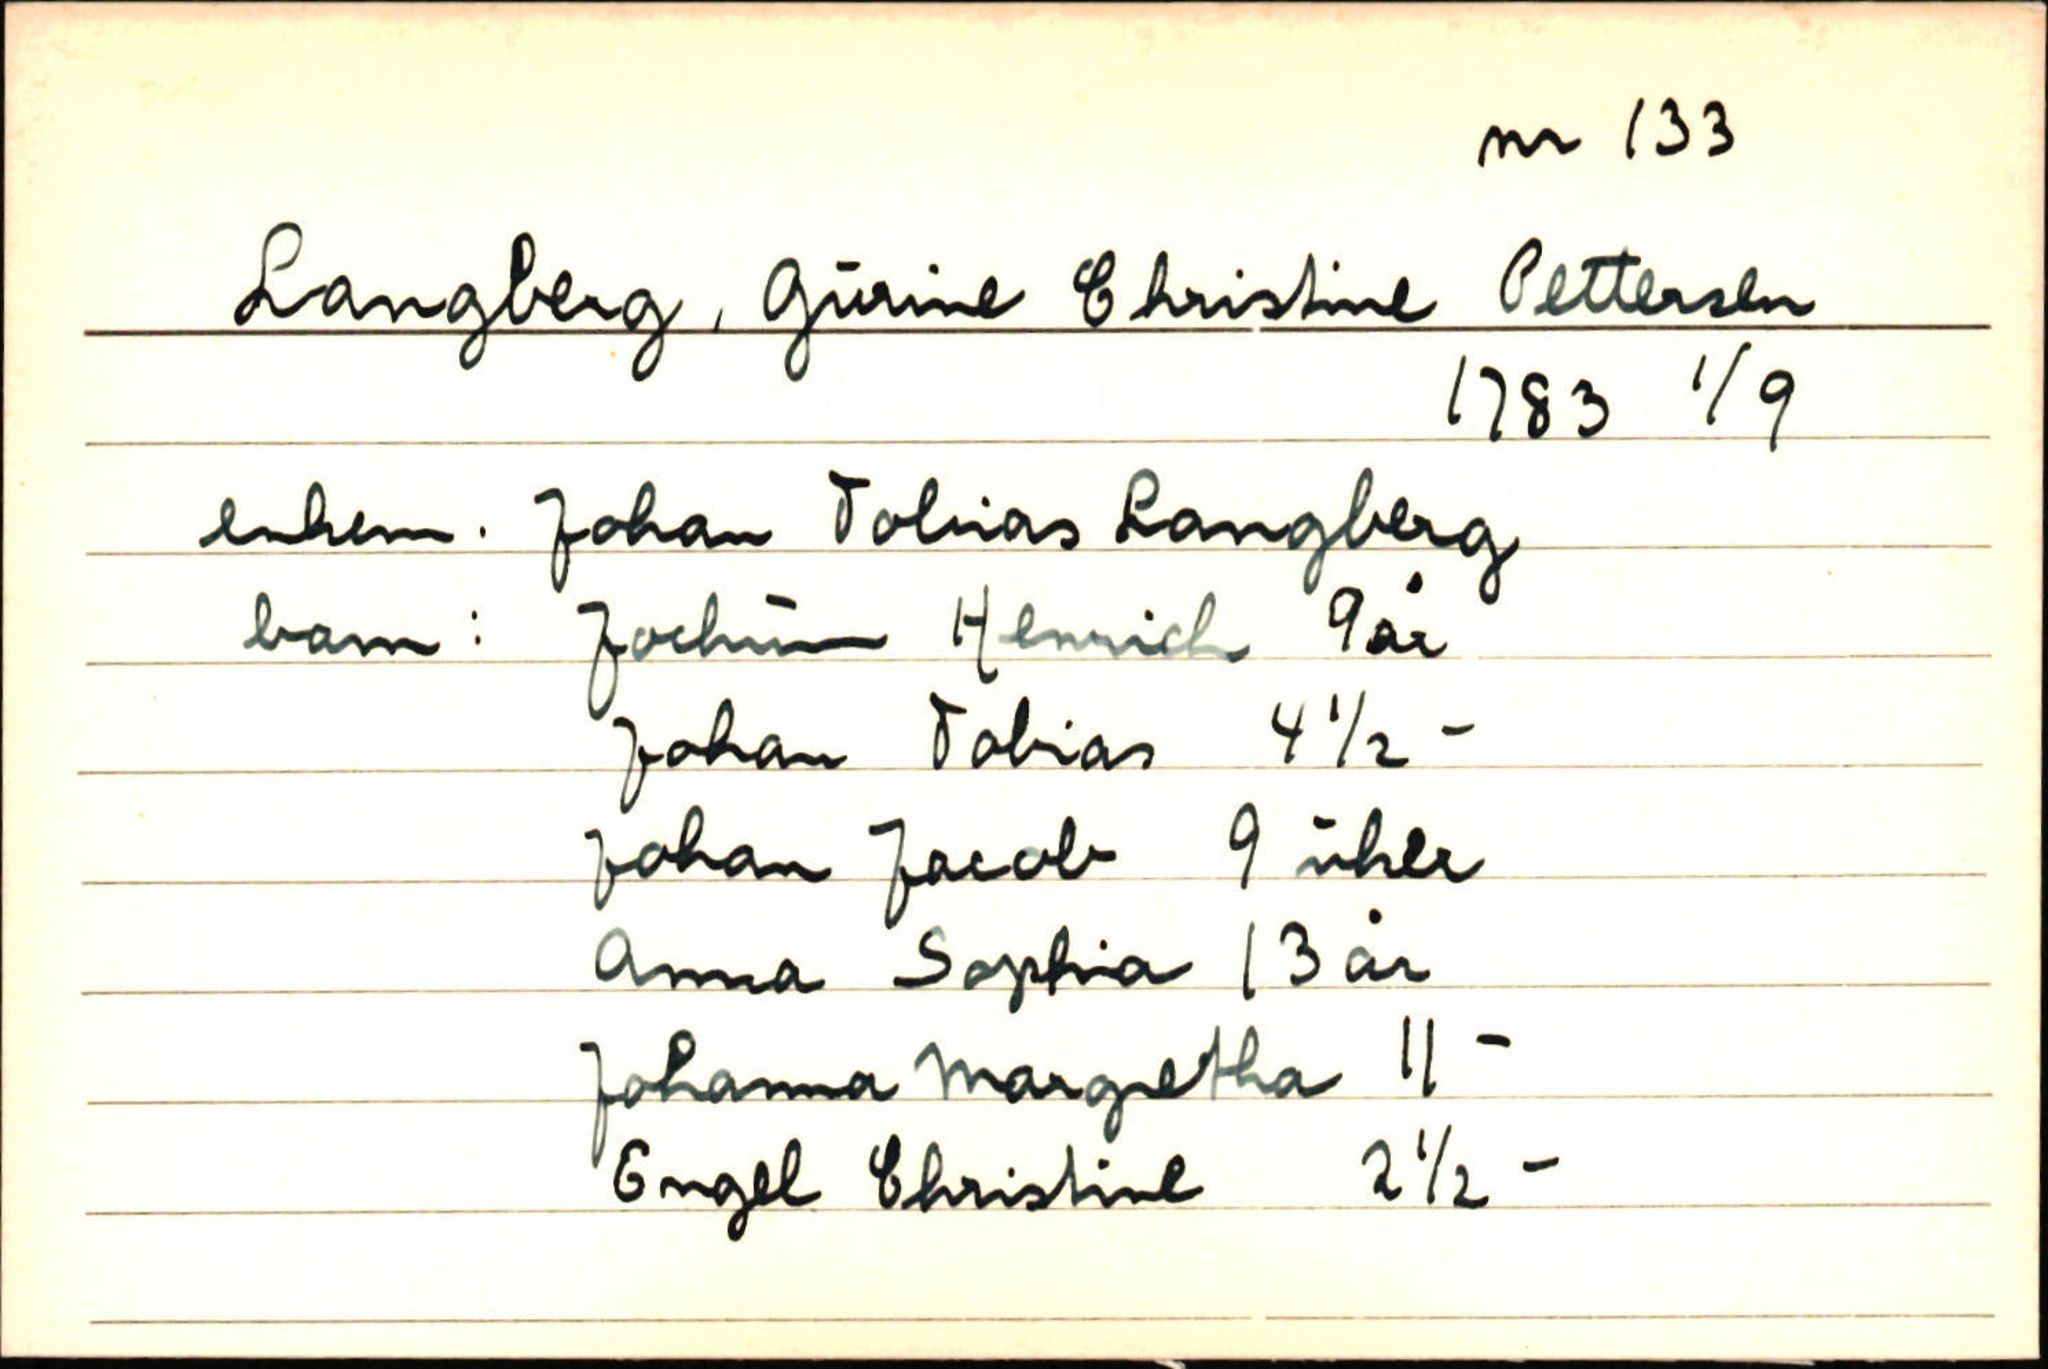 nr 133
Langberg, Gurine Christine Pettersen
1783 1/9
enkem. Johan Tobias Langberg
barn: Jochum Henrich 9 år
Johan Tobias 4 1/2 -
Johan Jacob 9 uker
Anna Sophia 13 år
Johanna Margretha 11 -
Engel Christine 2 1/2 -